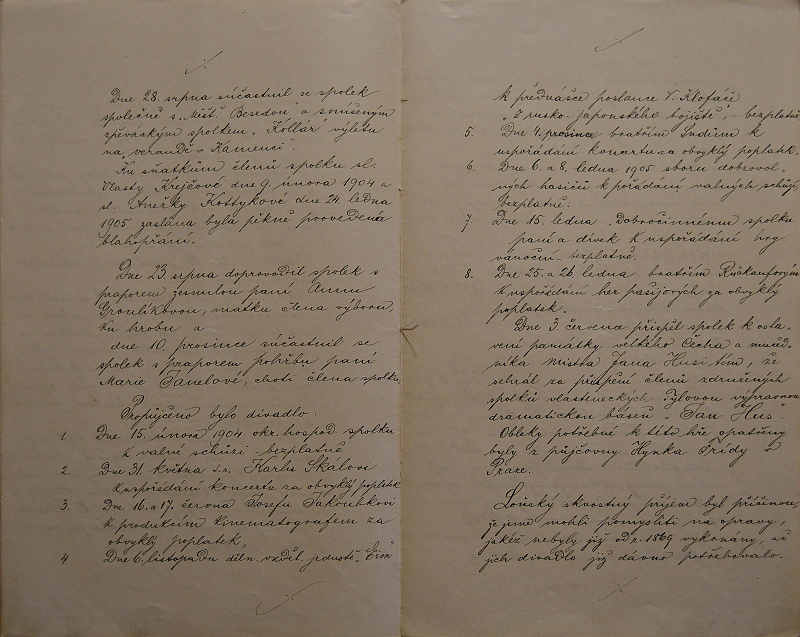 Dne 28. srpna súčastnil se spolek
společně s „Měšť. Besedou" a smíšeným
zpěváckým spolkem „Kollár" výletu
na „verandě v Kamenci".
Ku sňatkům členů spolku sl.
Vlasty Krejčové dne 9. února 1904 a
sl. Anežky Kottykové dne 24. ledna
1905 zaslána byla pěkně provedená
blahopřání.
Dne 23. srpna doprovodil spolek s
praporem zesnulou paní Annu
matku člena výboru,
ku hrobu a
dne 10. prosince súčastnil se
spolek s praporem pohřbu paní
Marie choti člena spolku.
Propůjčeno bylo divadlo:
1. Dne 15. února 1904 okr. hospod. spolku
k valné schůzi - bezplatně
2. Dne 31. května t.r. Karlu Skálovi
k uspořádání koncertu za obvyklý poplatek
3. Dne 16. a 17. června Josefu Jakoubkovi
k produkcím kinematografem za
obvyklý poplatek,
4. Dne 6. listopadu děln. vzděl. jednotě
k přednášce poslance V. Klofáče
„z rusko-japonského bojiště", - bezplatně
5. Dne 4. prosince bratřím k
uspořádání koncertu za obvyklý poplatek.
6. Dne 6. a 8. ledna 1905 sboru dobrovol-
ných hasičů k pořádání valných schůzí,
bezplatně.
7. Dne 15. ledna „Dobročinnému spolku
paní a dívek k uspořádání hry
vánoční - bezplatně.
8. Dne 25. a 26. ledna bratřím
k uspořádání her pašijových za obvyklý
poplatek.
Dne 3. července přispěl spolek k osla-
vení památky velkého Čecha a mučed-
níka mistra Jana Husi tím, že
sehrál za přispění členů zdruzených
spolků vlasteneckých Tylovou výpravnou
dramatickou báseň „Jan Hus".
Obleky potřebné k této hře opatřeny
byly z půjčovny Hynka Frídy v
Praze.
Loňský skvostný příjem byl příčinou,
že jsme mohli pomysliti na opravy,
jakéž nebyly již od r. 1869 vykonány, ač
jich divadlo již dávno potřebovalo.